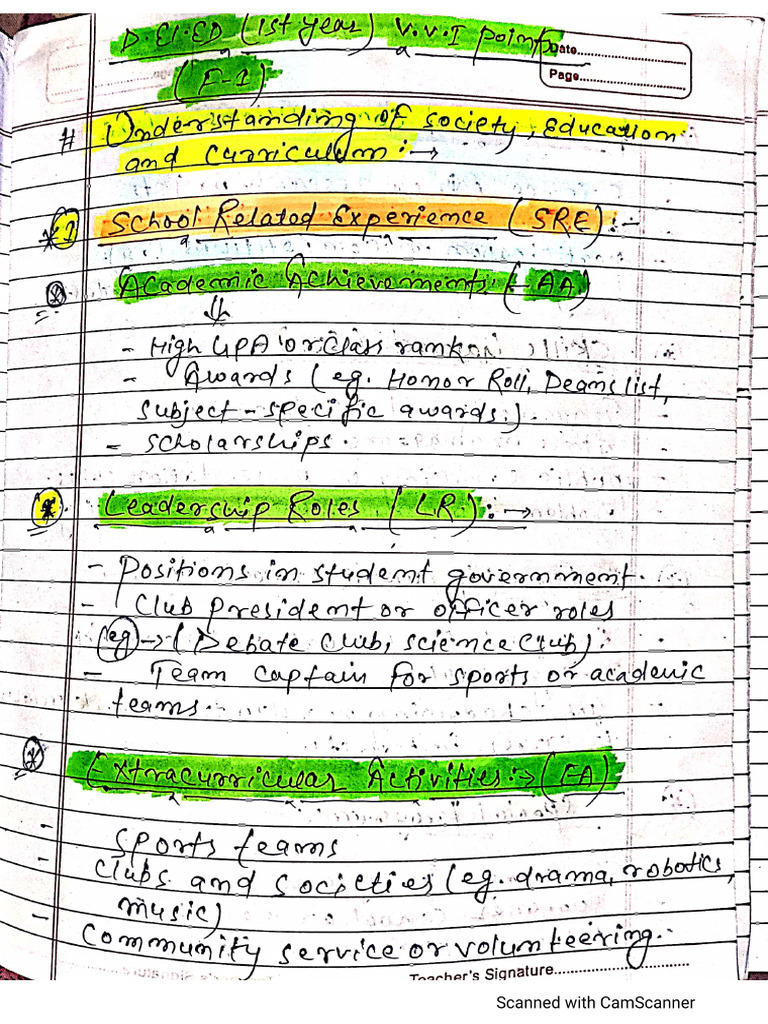 D.El.ED (1st year) V.V.I points
Date..................
(F-1)
Page..................
# Understanding of society, Education
and curriculum :→
*1 School Related Experience (SRE):-
Academic Achievements (AA)
- High GPA or Class rank
- Awards (eg. Honor Roll, Deans list,
subject-specific awards.)
- Scholarships.
* Leadership Roles (LR):→
- Positions in student government.
- Club president or officer roles
(eg)→(Debate club, science club):
- Team captain for sports or academic
teams.
* Extracurricular Activities:→(EA)
- Sports teams
- clubs and societies (eg. drama, robotics,
music)
- Community service or volunteering.
Teacher's Signature..................
Scanned with CamScanner